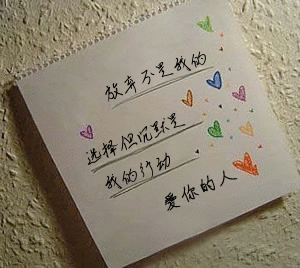 放弃不是我的
选择但沉默是
我的行动
爱你的人